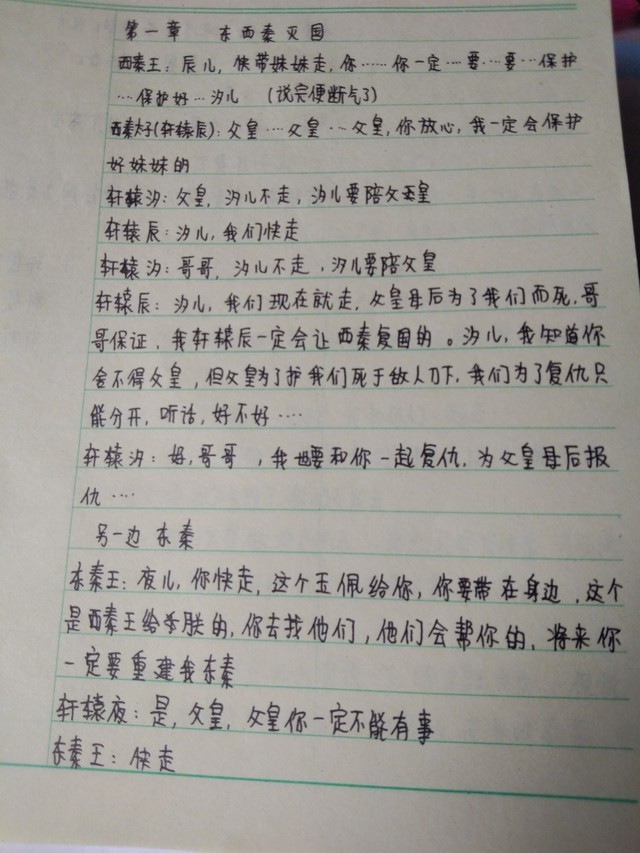 第一章 东西秦灭国
西秦王：辰儿，快带妹妹走，你……你一定…要…要…保护
…保护好…汐儿 （说完便断气了）
西秦太子(轩辕辰)：父皇…父皇…父皇，你放心，我一定会保护
好妹妹的
轩辕汐：父皇，汐儿不走，汐儿要陪父皇
轩辕辰：汐儿，我们快走
轩辕汐：哥哥，汐儿不走，汐儿要陪父皇
轩辕辰：汐儿，我们现在就走，父皇母后为了我们而死，哥
哥保证，我轩辕辰一定会让西秦复国的。汐儿，我知道你
舍不得父皇，但父皇为了护我们死于敌人刀下，我们为了复仇只
能分开，听话，好不好….
轩辕汐：好，哥哥，我也要和你一起复仇，为父皇母后报
仇….
另一边 东秦
东秦王：夜儿，你快走，这个玉佩给你，你要带在身边，这个
是西秦王给朕的，你去找他们，他们会帮你的，将来你
一定要重建我东秦
轩辕夜：是，父皇，父皇你一定不能有事
东秦王：快走